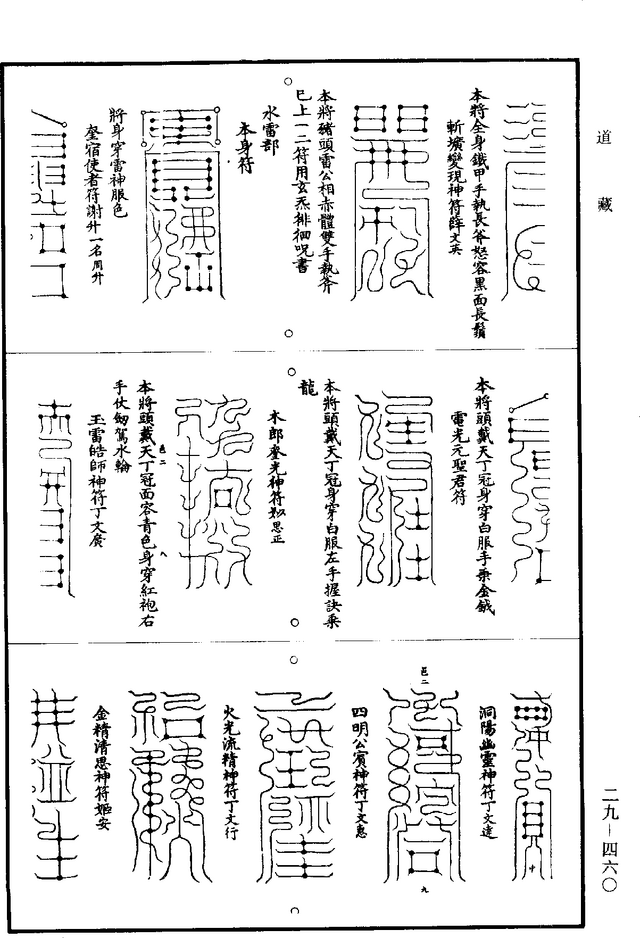 道藏
本將全身鐵甲手執長斧怒容黑面長鬚
斬壙變現神符薛文英
本將豬頭雷公相赤體雙手執斧
已上一二符用玄炁徘徊呪書
水雷部
本身符
將身穿雷神服色
奎宿使者符謝升一名周升
本將頭戴天丁冠身穿白服手乘金鉞
電光元聖君符
本將頭戴天丁冠身穿白服左手握訣乘
龍
木郎奎光神符姒思正
邑二
本將頭戴天丁冠面容青色身穿紅袍右
手仗劒駕水輪
八
玉雷皓師神符丁文廣
洞陽幽靈神符丁文達
十
邑二
九
四明公賓神符丁文惠
火光流精神符丁文行
金精清思神符姬安
二九—四六〇